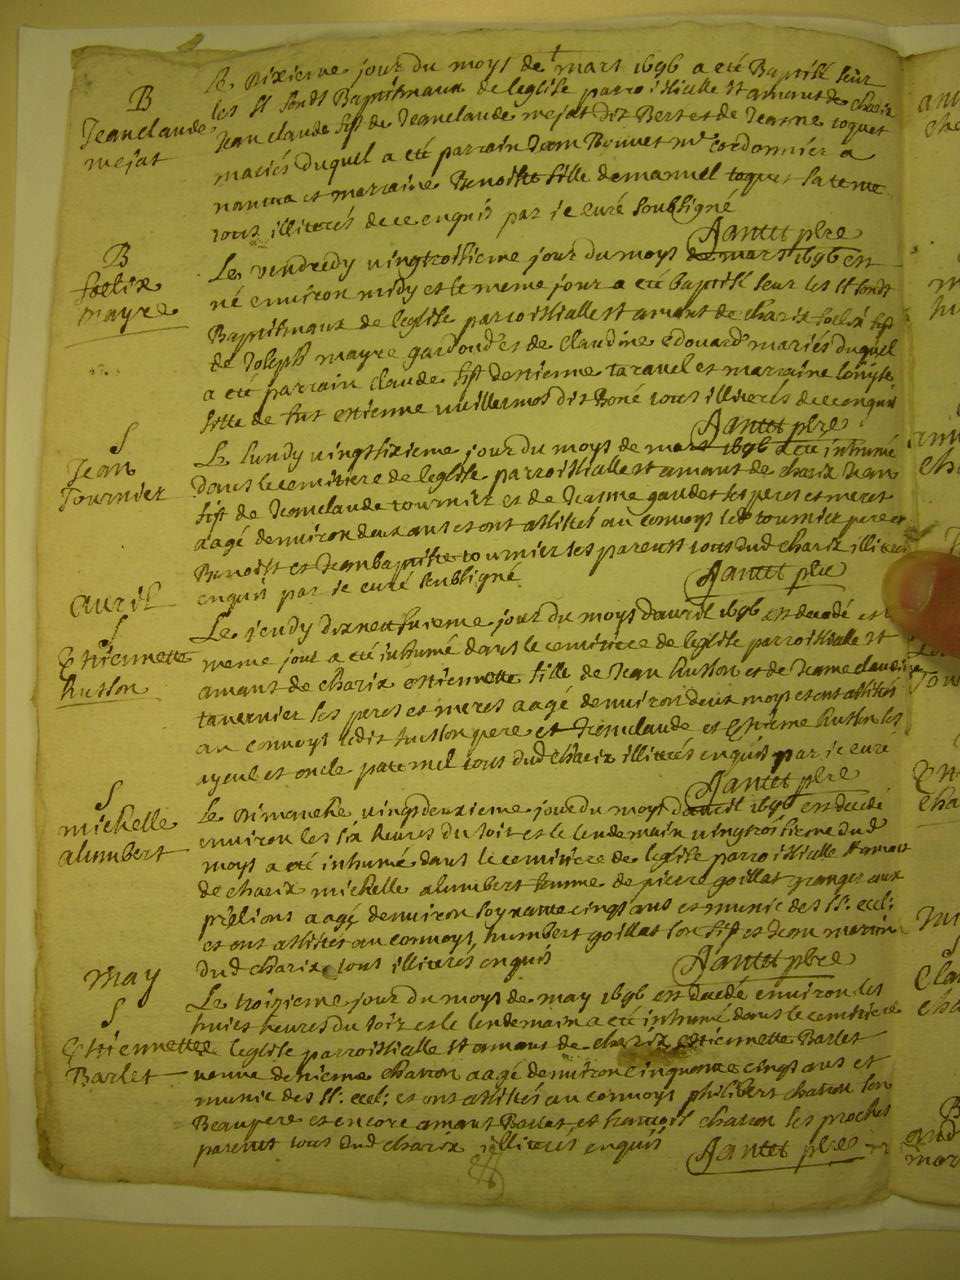 B
Jeanclaude
mejat
Le dixieme jour du moys de mars 1696 a eté Baptisé seur
les st fonds Baptismaux de leglise parroissialle st amant de charix
Jeanclaude fist de Jeanclaude mejat dit Bert et de Jeanne toquet
mariés duquel a eté parrain Jean Bonnet mr cordonnier a
nantua et marraine Benoiste fille demanuel toquet sa tente
tous illiterés de ce enquis par je curé soubsigné
Jantet pbre
B
foelix
mayre
Le vendredy vingtroisieme jour du moys de mars 1696 est
né environ midy et le meme jour a eté baptisé seur les st fonds
Baptismaux de leglise parroissialle st amant de charix foelix fist
de Joseph mayre gardond et de claudine edouard mariés duquel
a eté parrain claude fist destienne taravel et marraine
fille de fut estienne vuillermos dit Boné tous illiterés de ce enquis
Jantet pbre
S
Jean
Tournier
Le lundy vingtsixieme jour du moys de mars 1696 a eté inhumé
dans le cemitiere de leglise parroissialle st amant de charix Jean
fist de Jeanclaude tournier et de Jeanne gaudet ses peres et meres
aagé denviron deux ans et ont assistés au convoys led tournier pere et
Benoist et Jeanbaptiste tournier ses parents tous dud charix illiterés
enquis par je curé soubsigné
Jantet pbre
avril
S
Estiennette
husson
Le jeudy dixneufuieme jour du moys davril 1696 est decedé et le
meme jour a eté inhumé dans le cemitiere de leglise parroissialle st
amant de charix estiennette fille de Jean husson et de Jeanneclaudine
tavernier ses peres et meres aagé denviron deux moys et ont assistés
au convoys ledit husson pere et Jeanclaude et Estienne husson ses
ayeul et oncle paternel tous dud charix illiterés enquis par je curé
Jantet pbre
S
michelle
alumbert
Le Dimanche vingtdeuxieme jour du moys davril 1696 est decedé
environ les six heures du soir et le lendemain vingtroisieme dud
moys a eté inhumé dans le cemitiere de leglise parroissialle st amant
de charix michelle alumbert femme de pierre goillat granger aux
aagé denviron soyxante cinq ans et munie des st: eccl:
et ont assistés au convoys humbert goillat son fist et Jean
dud charix tous illiterés enquis
Jantet pbre
may
S
Estiennette
Barlet
Le troizieme jour du moys de may 1696 est decedé environ les
huict heures du soir et le lendemain a eté inhumé dans le cemitiere
de leglise parroissialle st amant de charix estiennette Barlet
veuve destienne chatton aagé denviron cinquante cinq ans et
munie des st: eccl: et ont assistés au convoys philibert chatton son
Beaupere et encore amant Barlet et francois chatton ses proches
parents tous dud charix illiterés enquis
Jantet pbre